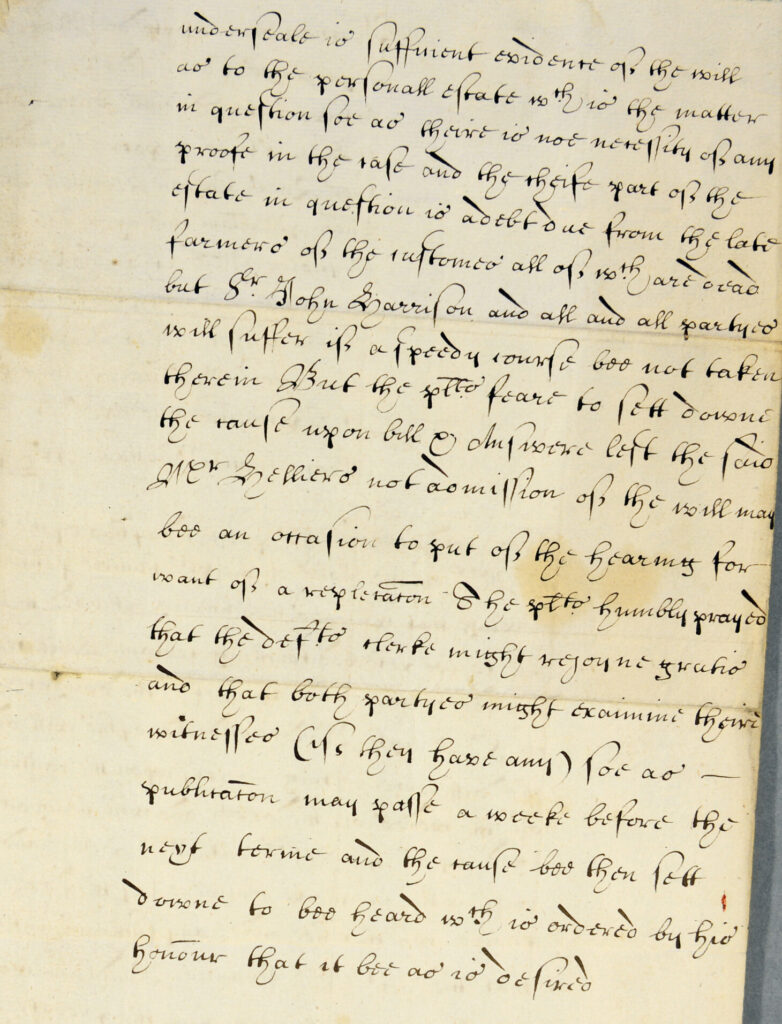 underseale is suffitient evidence of the will
as to the personall estate wth is the matter
in question soe as theire is noe necessity of any
proofe in the case and the cheife part of the
estate in question is a debt due from the late
farmers of the customes all of wth are dead
but Sr. John Harrison and all and all partyes
will suffer if a speedy course bee not taken
therein But the plts feare to sett downe
the cause upon bill & Answere lest the said
Mr Helliers not admission of the will may
bee an occasion to put of the hearing for
want of a replicacon The plts humbly prayed
that the defts clerke might rejoyne gratis
and that both partyes might examine theire
witnesses (if they have any) soe as —
publicacon may passe a weeke before the
next terme and the cause bee then sett
downe to bee heard wch is ordered by his
honour that it bee as is desired